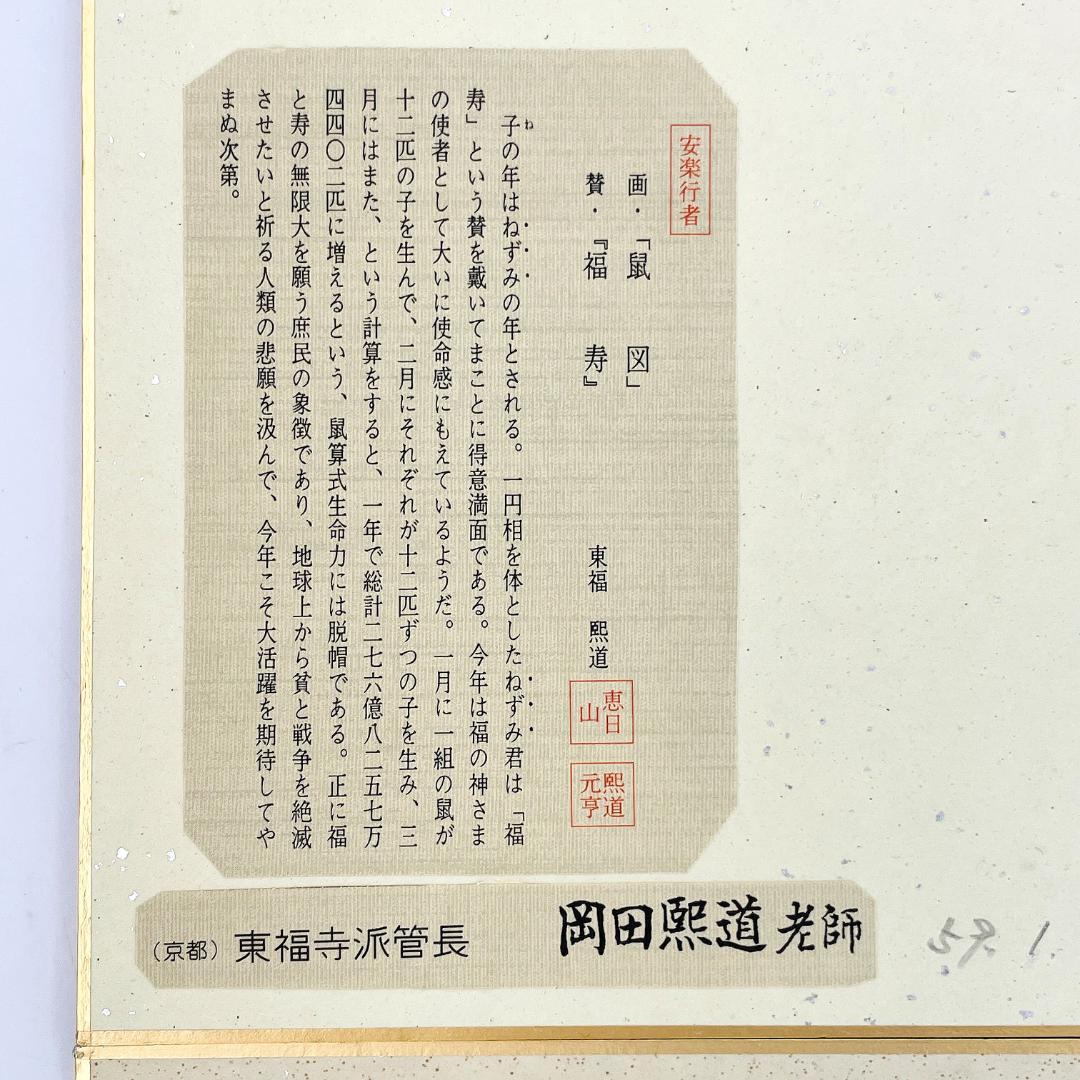 安楽行者
画・「鼠　図」
賛・『福　寿』　東福　熙道
恵日山
熙道元亨
子の年はねずみの年とされる。一円相を体としたねずみ君は「福
寿」という賛を戴いてまことに得意満面である。今年は福の神さま
の使者として大いに使命感にもえているようだ。一月に一組の鼠が
十二匹の子を生んで、二月にそれぞれが十二匹ずつの子を生み、三
月にはまた、という計算をすると、一年で総計二七六億八二五七万
四四〇二匹に増えるという、鼠算式生命力には脱帽である。正に福
と寿の無限大を願う庶民の象徴であり、地球上から貧と戦争を絶滅
させたいと祈る人類の悲願を汲んで、今年こそ大活躍を期待してや
まぬ次第。
（京都）東福寺派管長　岡田熙道老師
59. 1.